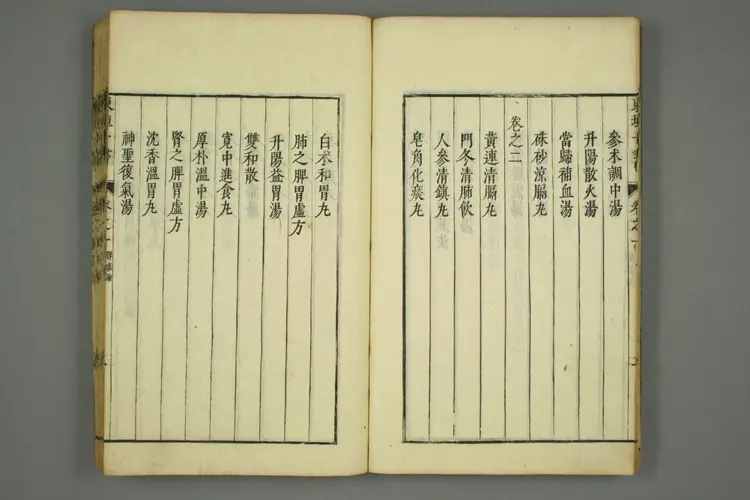 參术調中湯
升陽散火湯
當歸補血湯
硃砂涼膈丸
卷之二
黃連清膈丸
門冬清肺飲
人參清鎮丸
皂角化痰丸
白术和胃丸
肺之脾胃虛方
升陽益胃湯
雙和散
寬中進食丸
厚朴溫中湯
腎之脾胃虛方
沈香溫胃丸
神聖復氣湯
東垣十書
卷之一